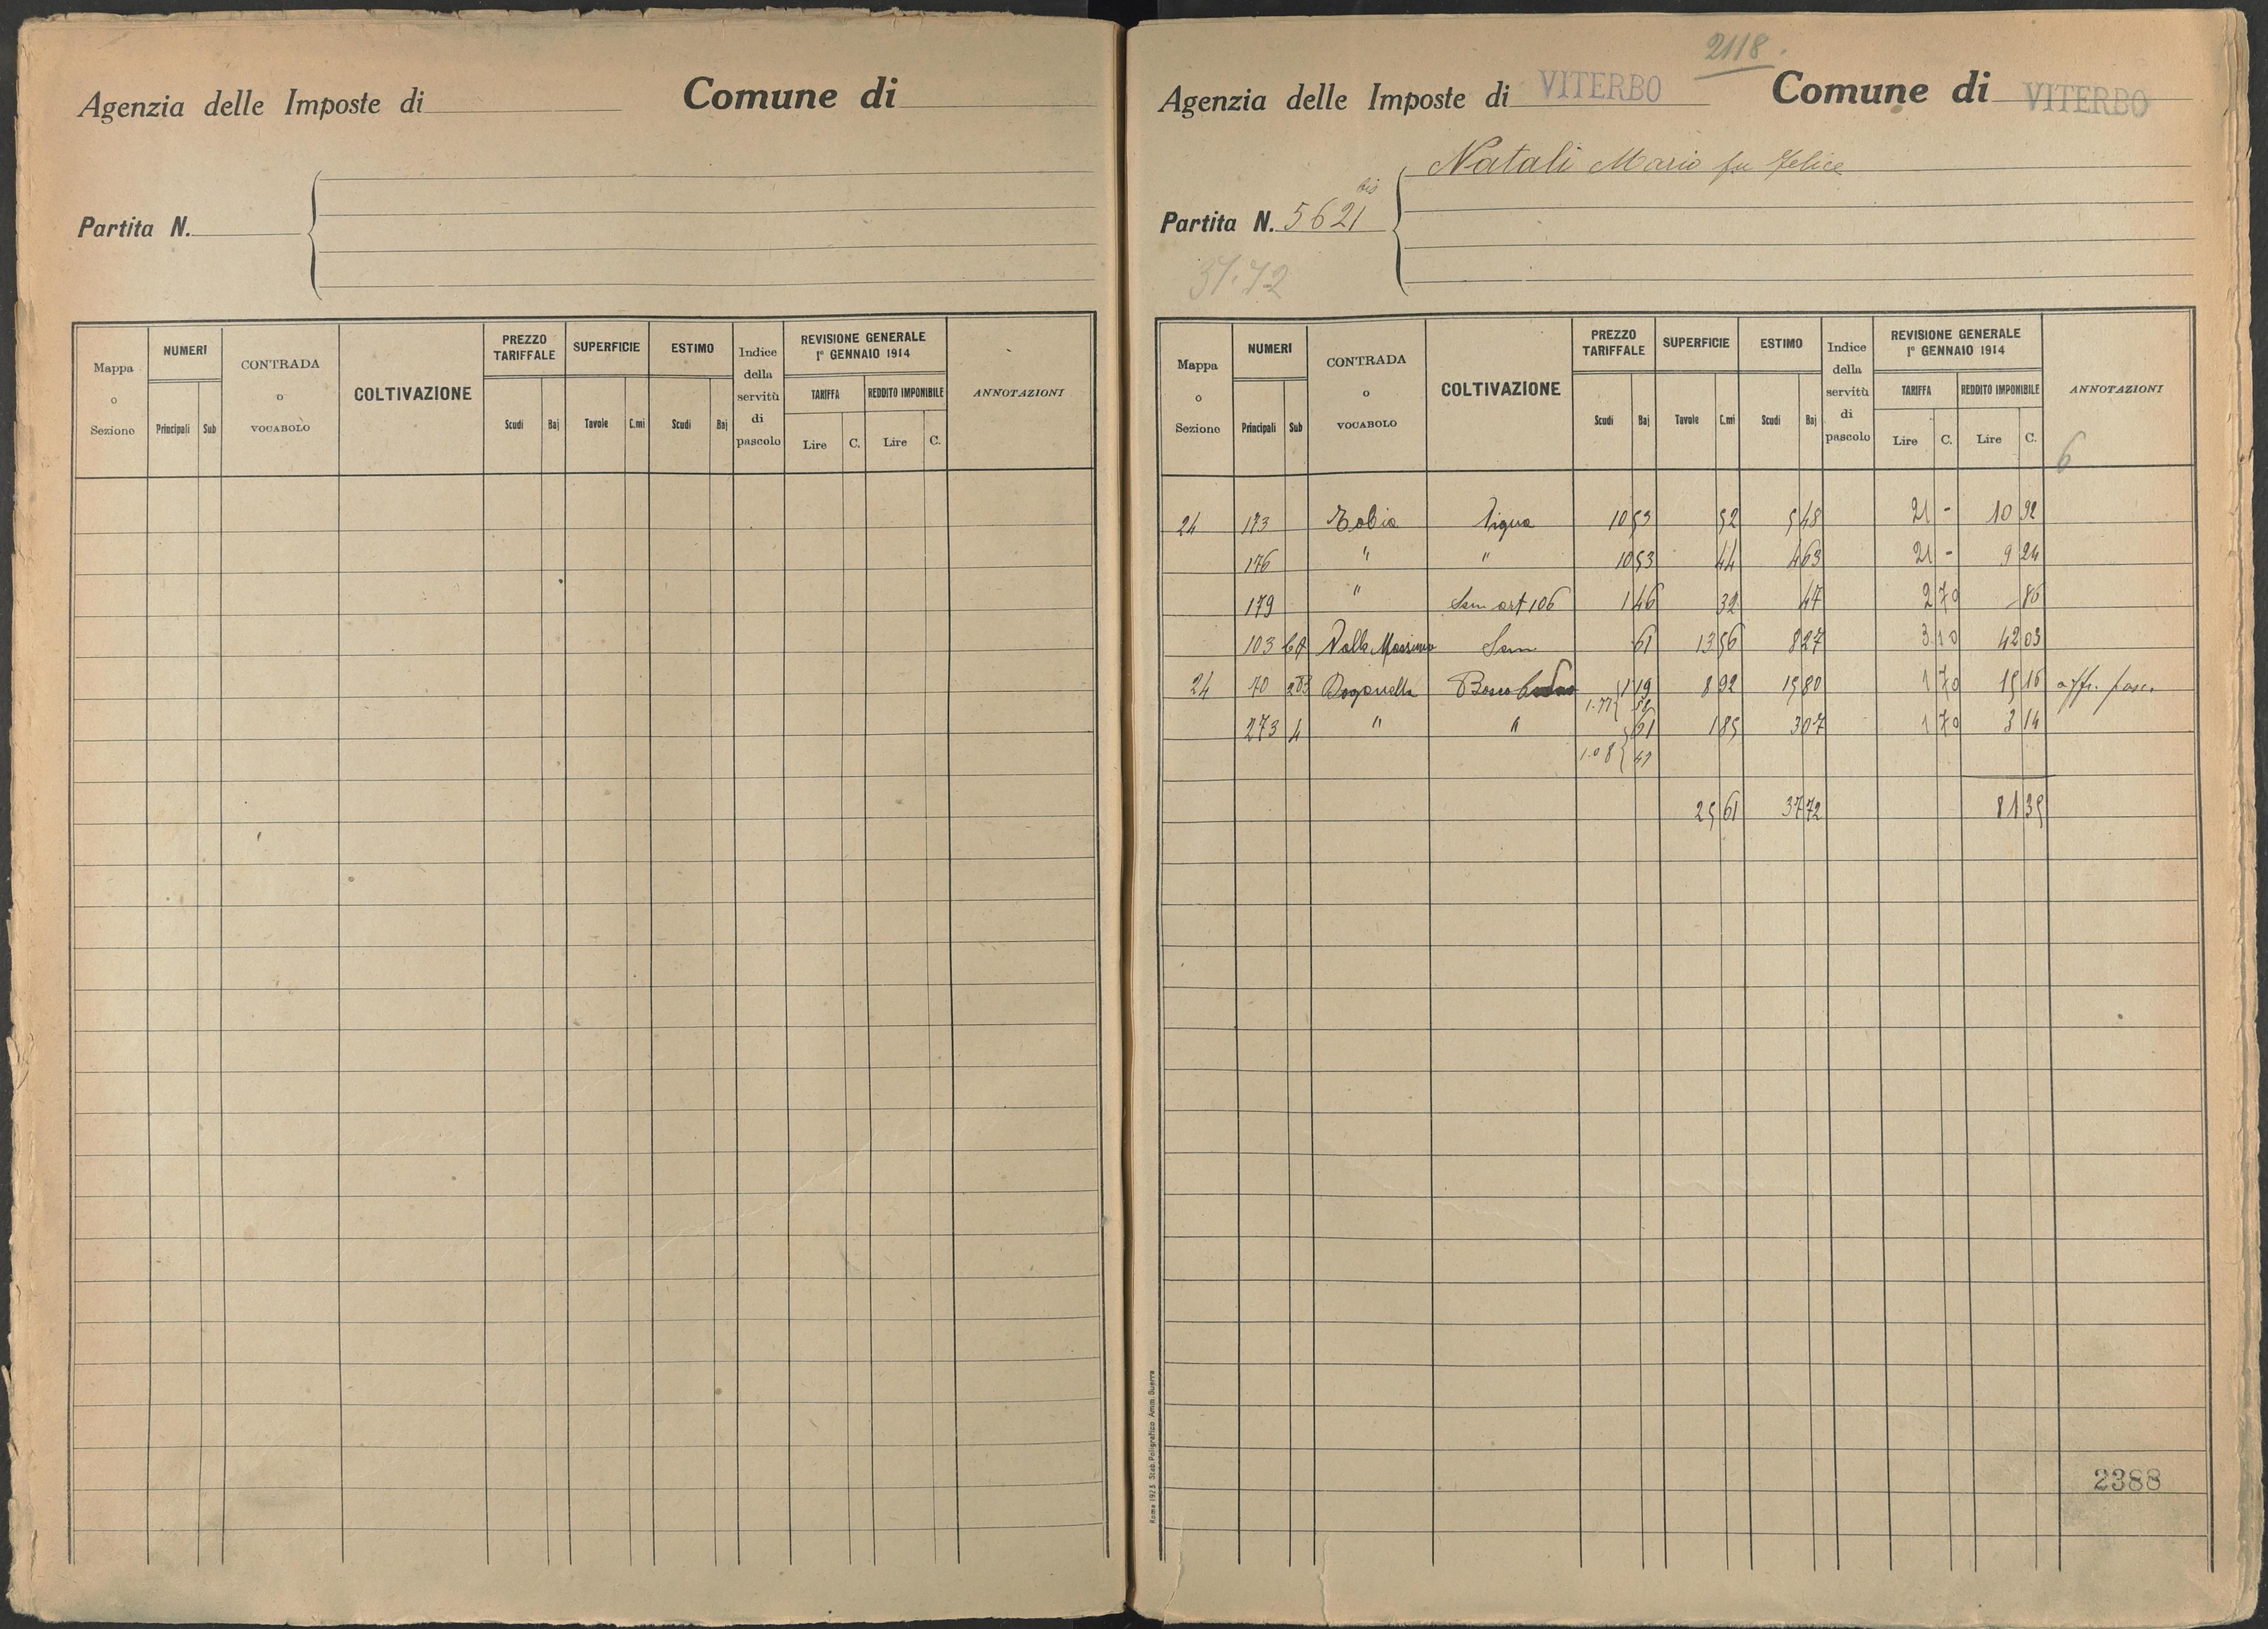 Agenzia delle Imposte di
Comune di
Partita N.
Mappa o Sezione
NUMERI
Principali Sub
CONTRADA o VOCABOLO
COLTIVAZIONE
PREZZO TARIFFALE
Scudi Baj
SUPERFICIE
Tavole C.mi
ESTIMO
Scudi Baj
Indice della servitù di pascolo
REVISIONE GENERALE
1° GENNAIO 1914
TARIFFA
Lire C.
REDDITO IMPONIBILE
Lire C.
ANNOTAZIONI
2118.
Agenzia delle Imposte di VITERBO
Comune di VITERBO
Natali Mario fu Felice
Partita N. 5621 bis
37.72
Mappa o Sezione
NUMERI
Principali Sub
CONTRADA o VOCABOLO
COLTIVAZIONE
PREZZO TARIFFALE
Scudi Baj
SUPERFICIE
Tavole C.mi
ESTIMO
Scudi Baj
Indice della servitù di pascolo
REVISIONE GENERALE
1° GENNAIO 1914
TARIFFA
Lire C.
REDDITO IMPONIBILE
Lire C.
ANNOTAZIONI
6
24 173 Tobia Vigna 10 53 52 5 48 21 - 10 92
176 " " 10 53 44 4 63 21 - 9 24
179 " Sem art 106 1 46 32 47 2 70 - 86
103 Valle Massimo Sem 61 13 56 8 27 3 10 42 03
24 70 283 Doganella Bosco 1 19 8 92 15 80 1 70 15 16 aff. pasc.
1.77 { 58
273 4 " " 61 1 85 3 07 1 70 3 14
1.08 { 47
25 61 37 72 81 35
Roma 1923 Stab. Poligrafico Amm. Guerra
2388